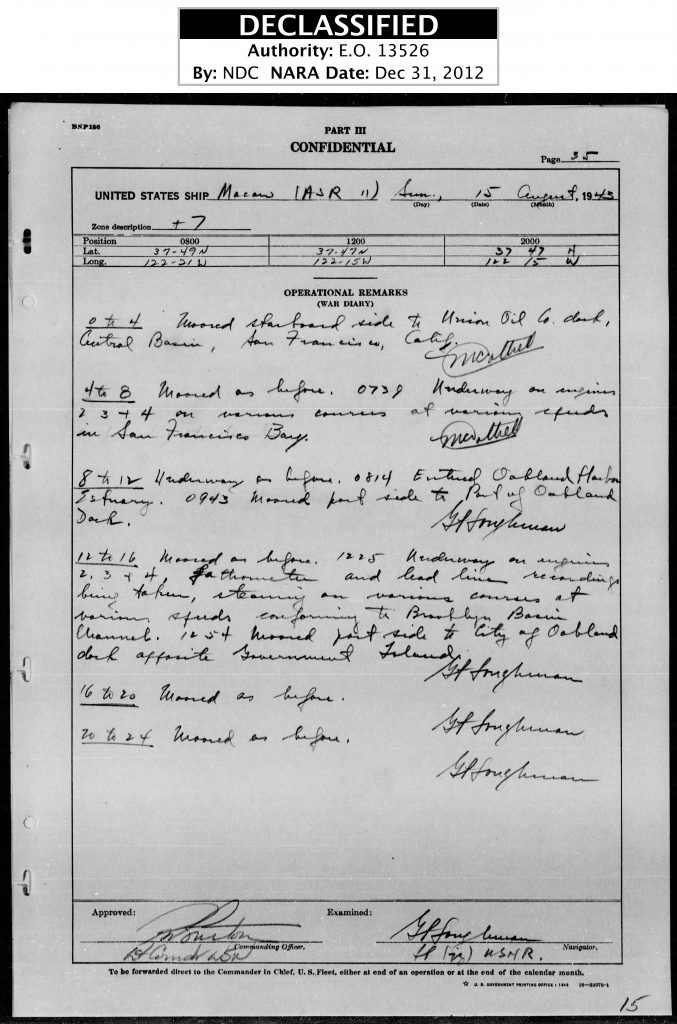 DECLASSIFIED
Authority: E.O. 13526
By: NDC NARA Date: Dec 31, 2012
BNP186
PART III
CONFIDENTIAL
Page 35
UNITED STATES SHIP Macaw (ASR 11) Sun., 15 August, 1943
(Day) (Date) (Month)
Zone description +7
Position 0800 1200 2000
Lat. 37-49N 37-47N 37 47 N
Long. 122-21W 122-15W 122 15 W
OPERATIONAL REMARKS
(WAR DIARY)
0 to 4 Moored starboard side to Union Oil Co. dock,
Central Basin, San Francisco, Calif.
4 to 8 Moored as before. 0739 Underway on engines
2 3 + 4 on various courses at various speeds
in San Francisco Bay.
8 to 12 Underway as before. 0814 Entered Oakland Harbor
Estuary. 0943 Moored port side to Port of Oakland
Dock.
G F Loughman
12 to 16 Moored as before. 1225 Underway on engines
2, 3 + 4, fathometer and lead line recordings
being taken, steaming on various courses at
various speeds conforming to Brooklyn Basin
Channel. 1254 Moored port side to City of Oakland
dock opposite Government Island.
G F Loughman
16 to 20 Moored as before.
G F Loughman
20 to 24 Moored as before.
G F Loughman
Approved: Examined:
G F Loughman
Commanding Officer. Navigator.
Lt Comdr USN Lt (jg) USNR.
To be forwarded direct to the Commander in Chief, U. S. Fleet, either at end of an operation or at the end of the calendar month.
☆ U. S. GOVERNMENT PRINTING OFFICE : 1943 16-33079-1
15